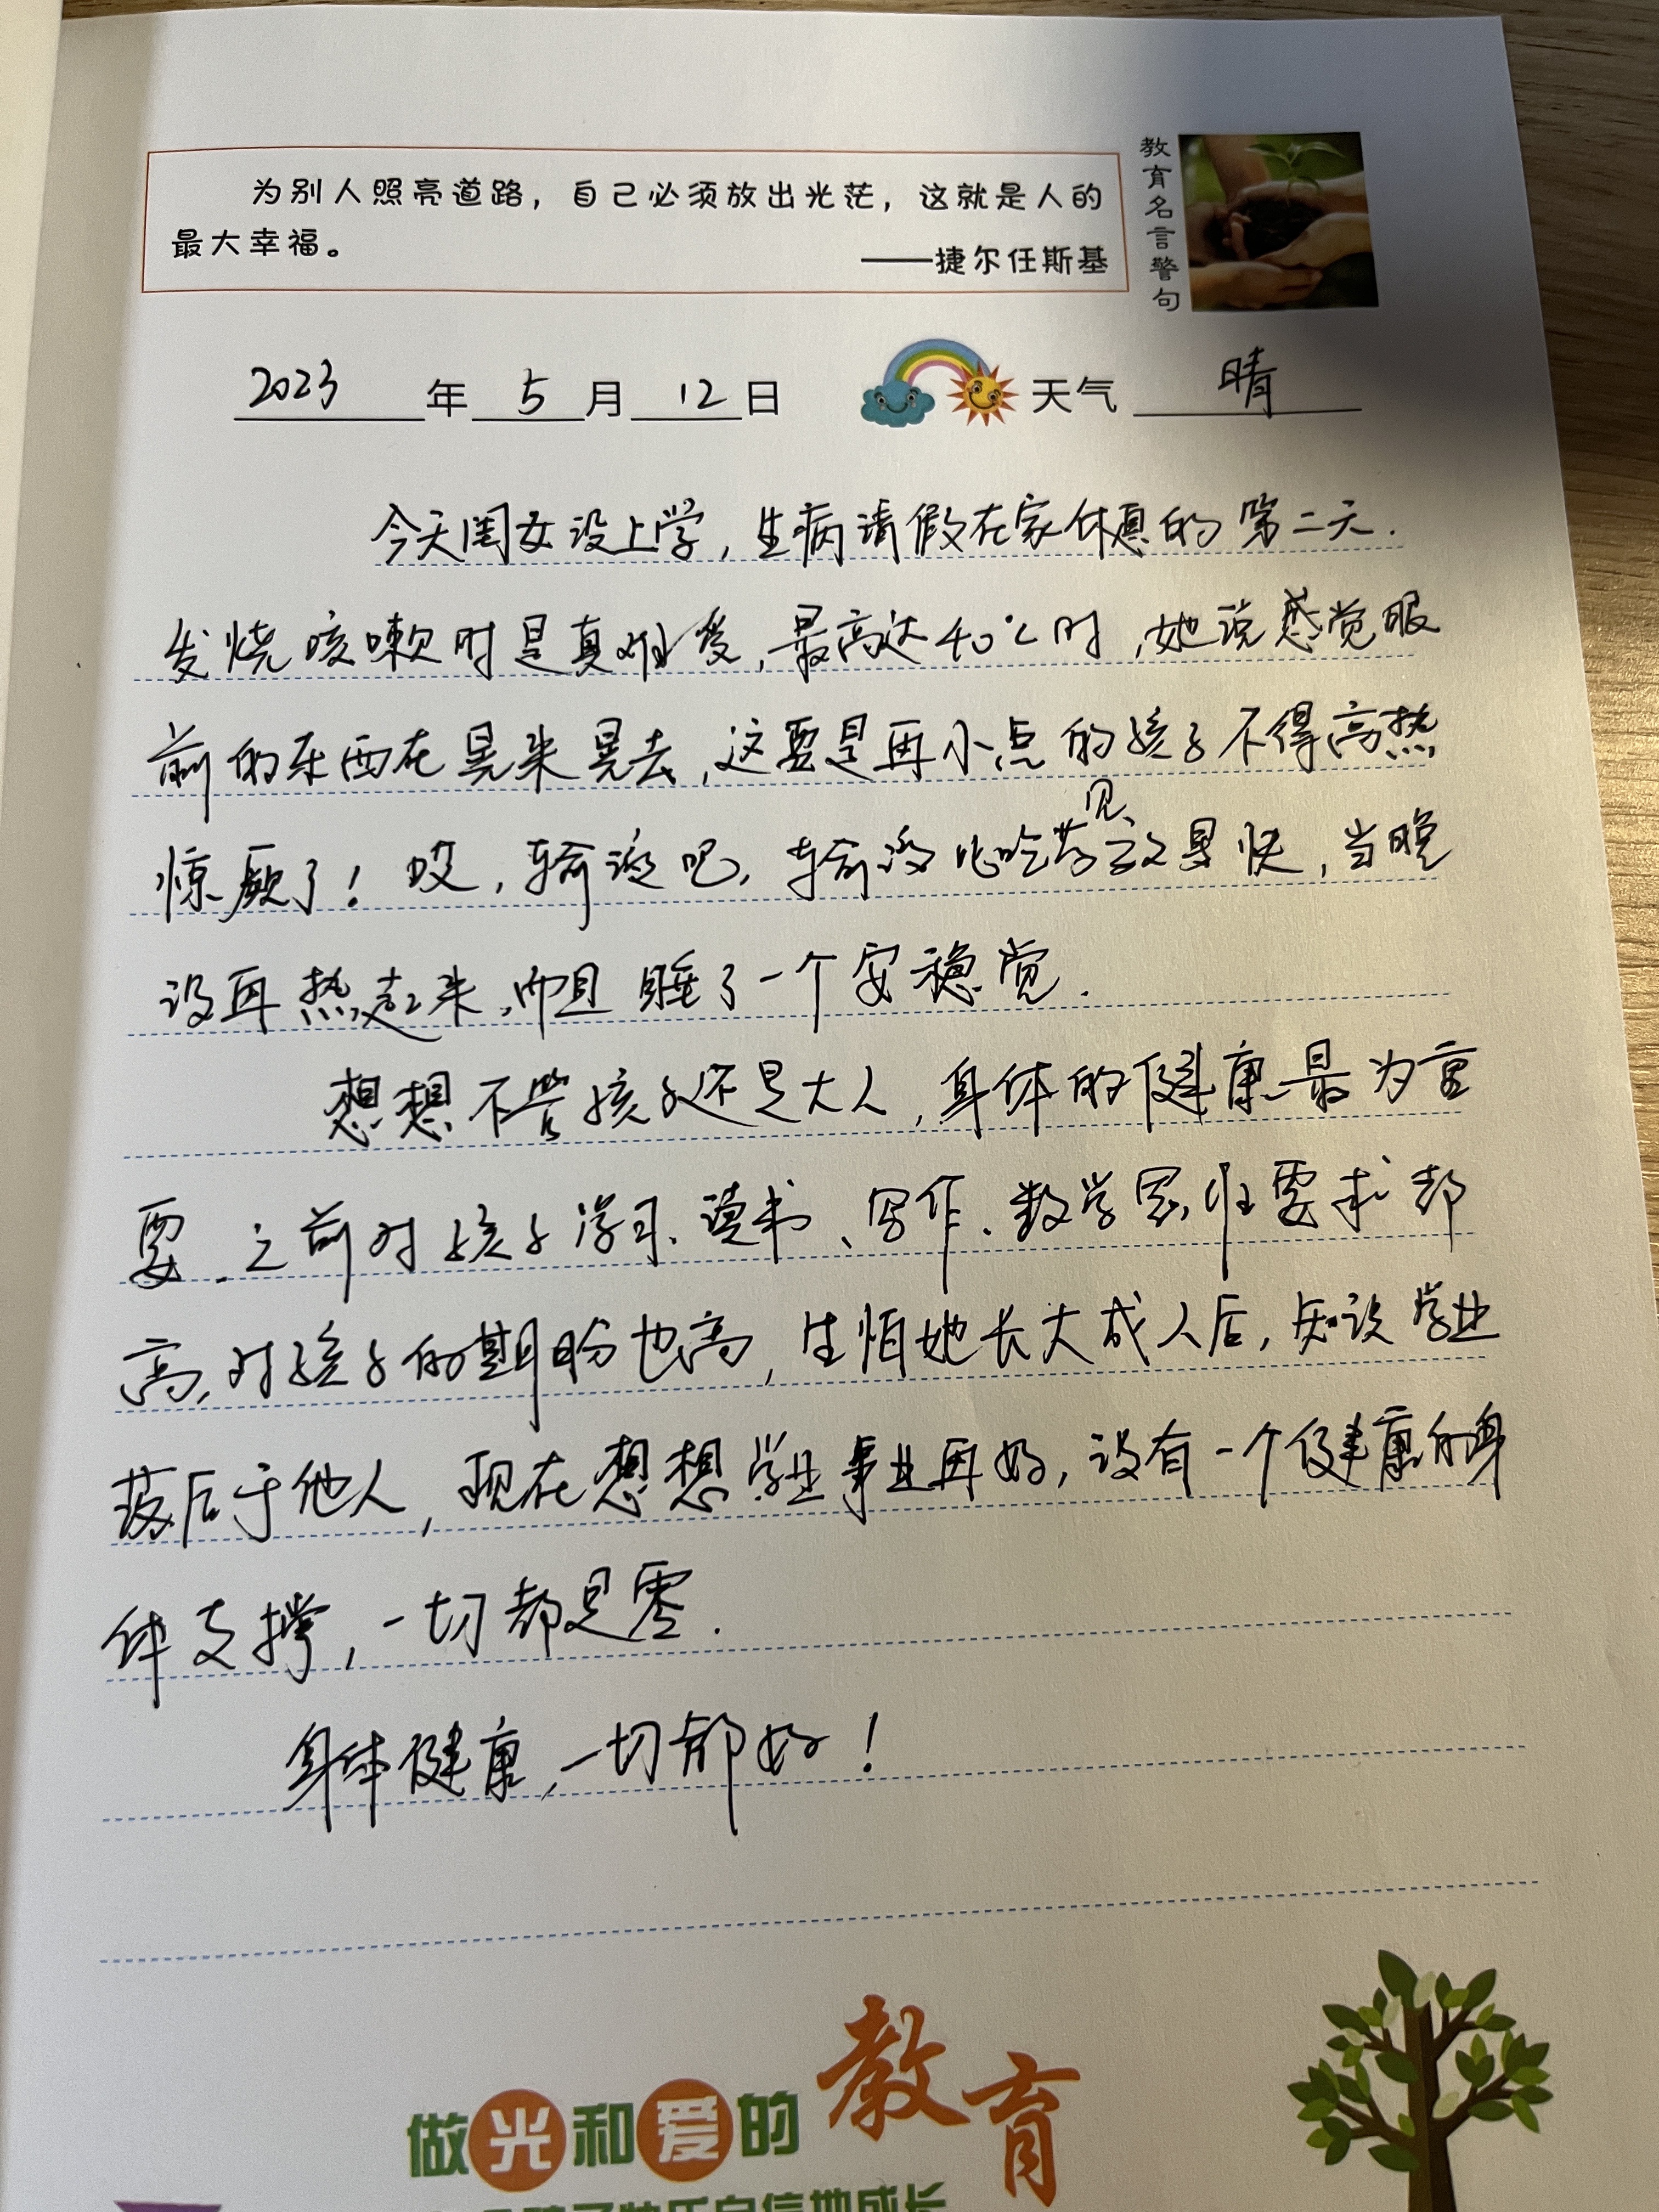 为别人照亮道路，自己必须放出光茫，这就是人的
最大幸福。
——捷尔任斯基
教育名言警句
2023年5月12日 天气 晴
今天闺女没上学，生病请假在家休息的第二天.
发烧咳嗽时是真难受，最高达40℃时，她说感觉眼
前的东西在晃来晃去，这要是再小点的孩子不得高热
惊厥了！哎，输液吧，输液比吃药见效果快，当晚
没再热起来，而且睡了一个安稳觉.
想想不管孩子还是大人，身体的健康最为重
要.之前对孩子学习、读书、写作、数学思维要求都
高，对孩子的期盼也高，生怕她长大成人后，知识学业
落后于他人，现在想想学业事业再好，没有一个健康的身
体支撑，一切都是零.
身体健康，一切都好！
做光和爱的教育